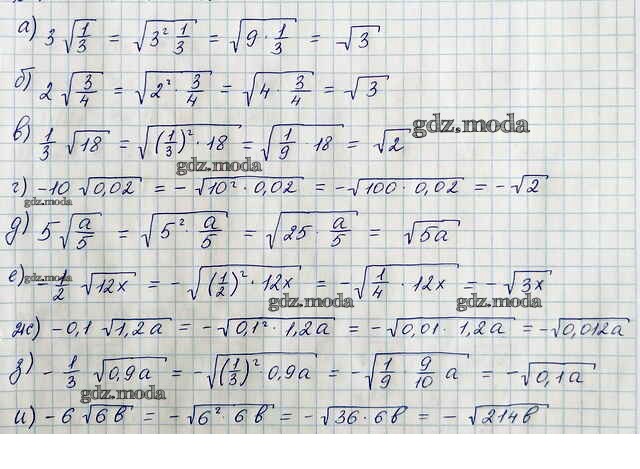 а) 3 √(1/3) = √(3² 1/3) = √(9 · 1/3) = √3
б) 2 √(3/4) = √(2² · 3/4) = √(4 · 3/4) = √3
в) 1/3 √18 = √((1/3)² · 18) = √(1/9 · 18) = √2 gdz.moda
gdz.moda
г) -10 √0,02 = -√(10² · 0,02) = -√(100 · 0,02) = -√2
gdz.moda
д) 5 √(a/5) = √(5² · a/5) = √(25 · a/5) = √5a
е) gdz.moda -1/2 √12x = -√((1/2)² · 12x) = -√(1/4 · 12x) = -√3x
gdz.moda gdz.moda
ж) -0,1 √1,2a = -√(0,1² · 1,2a) = -√(0,01 · 1,2a) = -√0,012a
з) -1/3 √0,9a = -√((1/3)² · 0,9a) = -√(1/9 9/10 a) = -√0,1a
gdz.moda
и) -6 √6b = -√(6² · 6b) = -√(36 · 6b) = -√214b